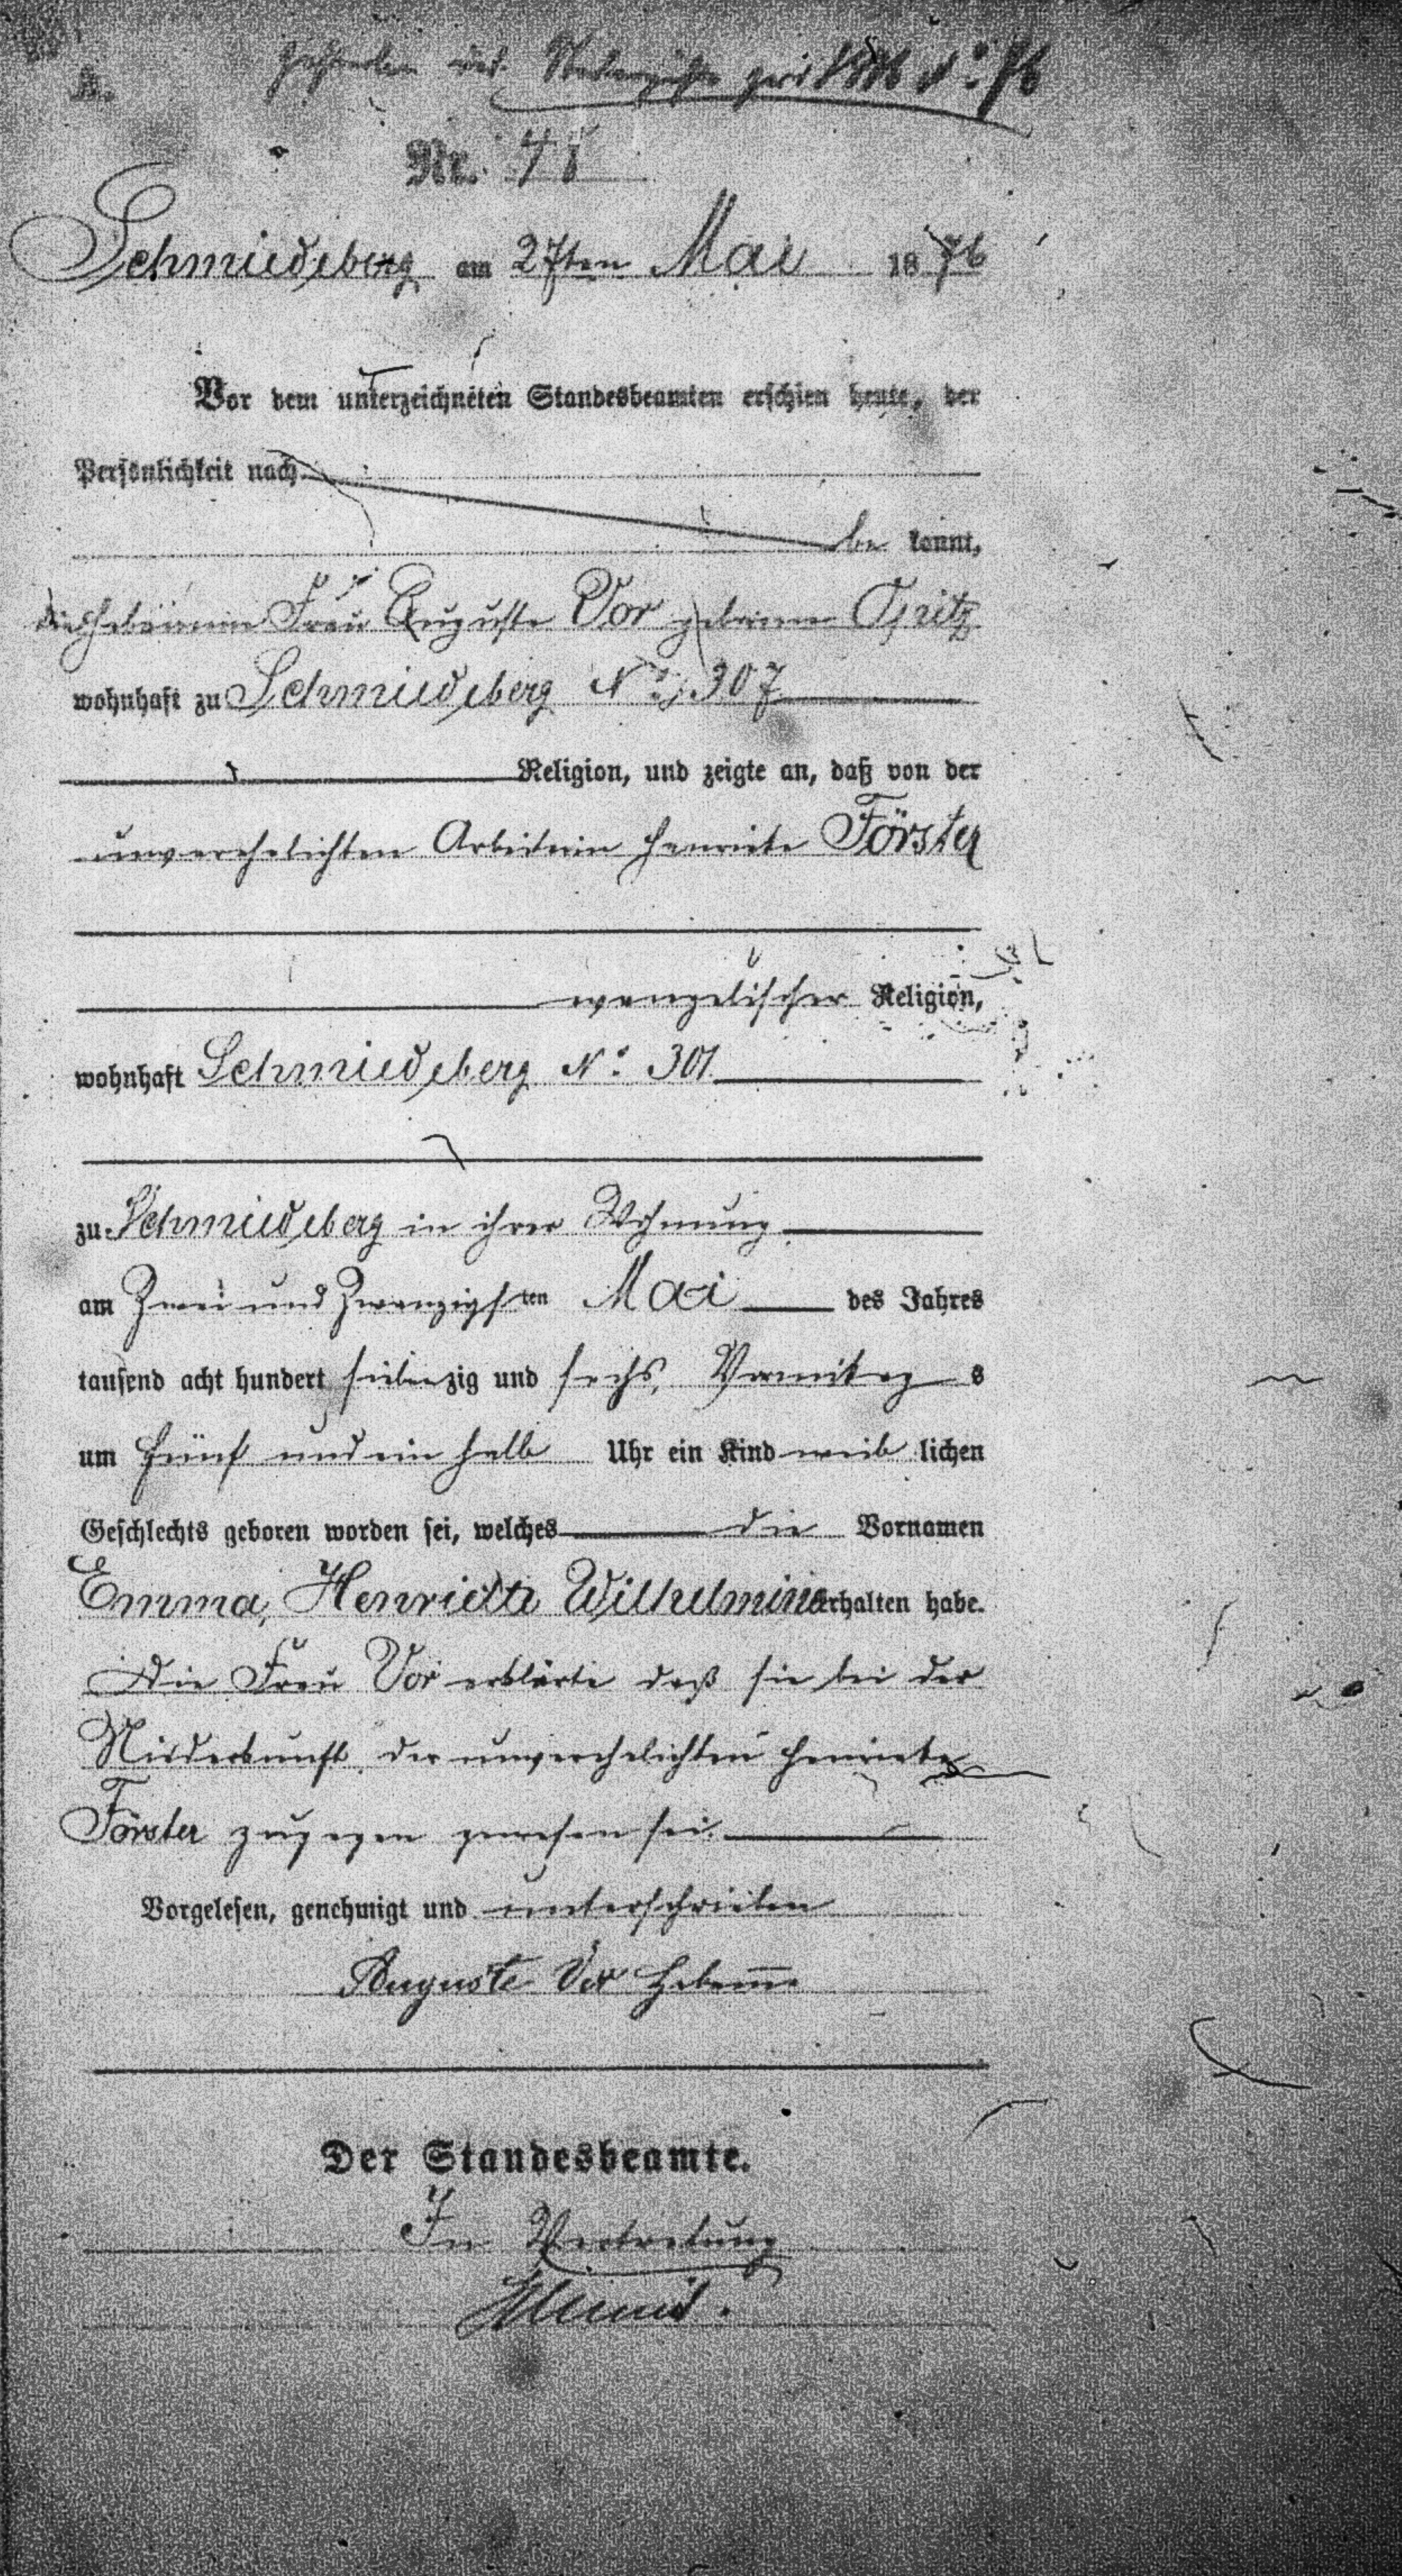 Nr. 
Schmiedeberg am 27ten Mai 1876
Vor dem unterzeichneten Standesbeamten erschien heute, der
Persönlichkeit nach
be kannt,
die Hebamme Frau Auguste Vor geborne
wohnhaft zu Schmiedeberg No. 307
Religion, und zeigte an, daß von der
unverehelichten Arbeiterin Henriete Förster
evangelischer Religion,
wohnhaft Schmiedeberg No. 301
zu Schmiedeberg in ihrer Wohnung
am Zwei und Zwanzigsten Mai des Jahres
tausend acht hundert siebenzig und sechs, Vormittag s
um fünf und ein halb Uhr ein Kind weib lichen
Geschlechts geboren worden sei, welches die Vornamen
Emma, Henriette Wilhelmine erhalten habe.
Die Frau Vor erklärte daß sie bei der
Niederkunft der unverehelichten Henriete
Förster zugegen gewesen sei.
Vorgelesen, genehmigt und unterschrieben
Auguste Vor Hebamme
Der Standesbeamte.
In Vertretung